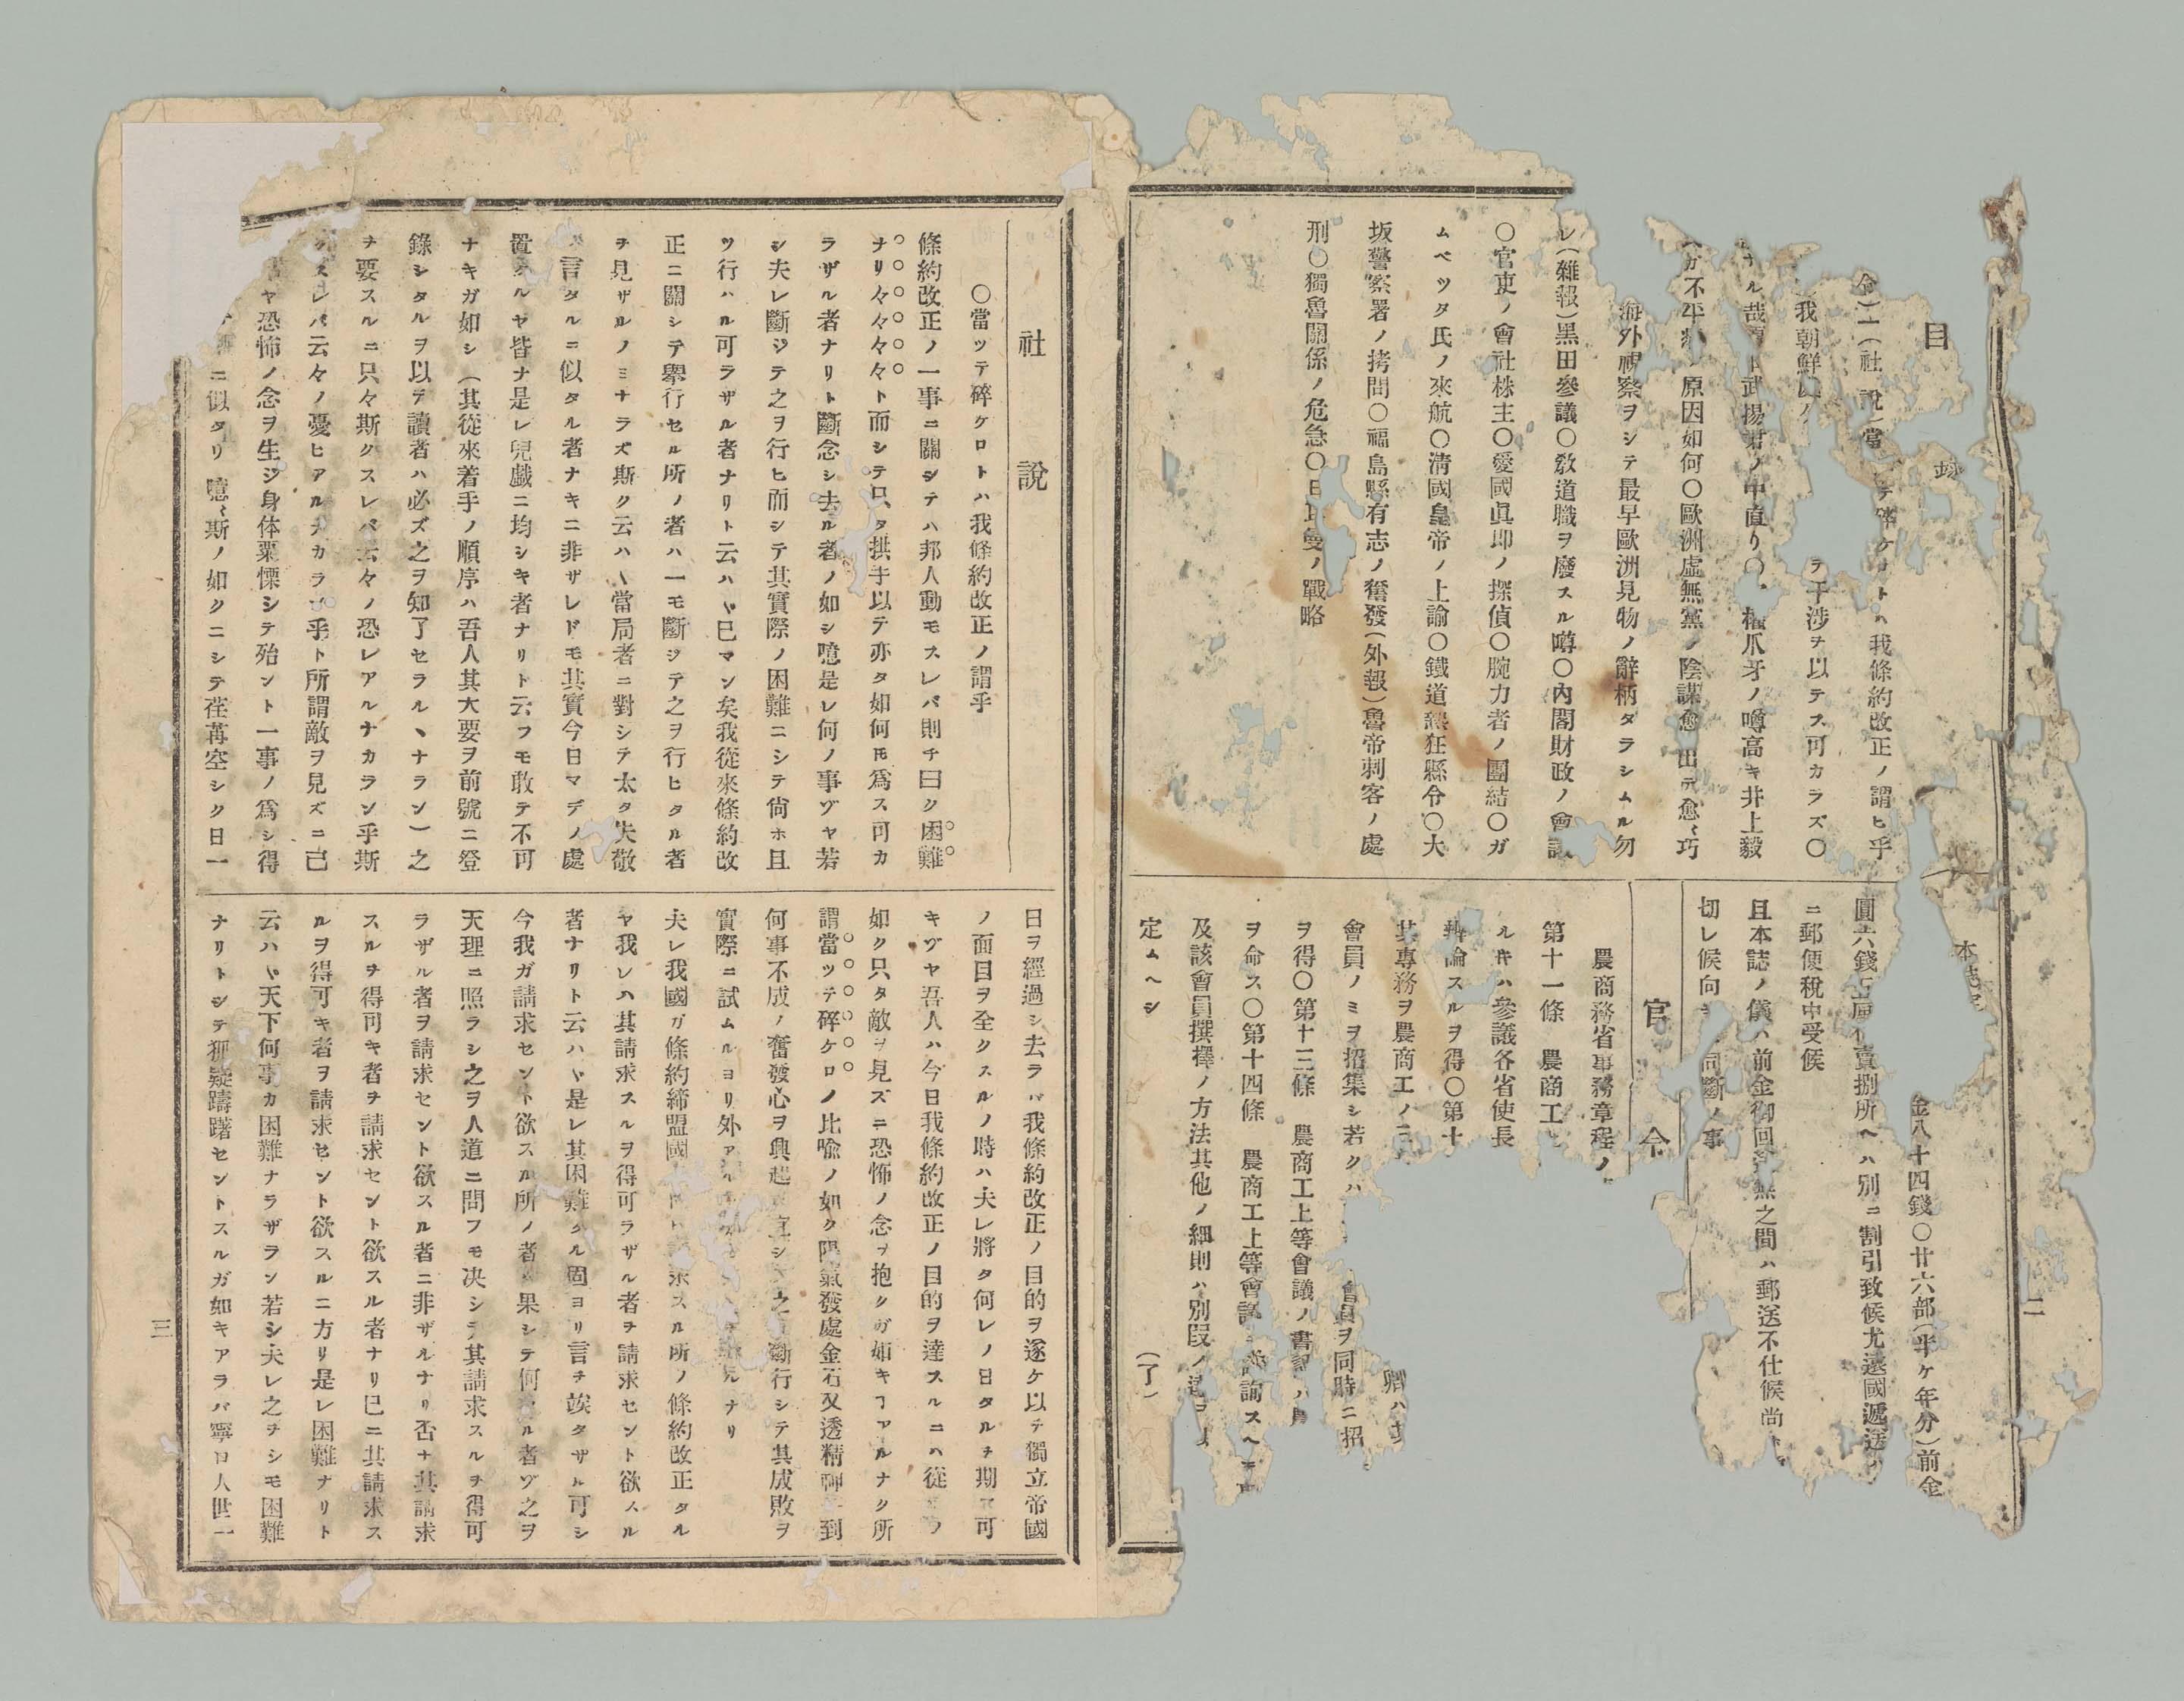 目 錄
我條約改正ノ謂ヒ乎
我朝鮮
干渉ヲ以テス可カラズ〇
武揚君ノ中直リ〇
爪牙ノ噂高キ井上毅
不平
原因如何〇歐洲虛無黨ノ陰謀愈出テ愈〻巧
海外視察ヲシテ最早歐洲見物ノ辭柄タラシムル勿
レ(雜報)黑田參議〇敎道職ヲ廢スル噂〇內閣財政ノ會議
〇官吏ノ會社株主〇愛國眞卽ノ探偵〇腕力者ノ團結〇ガ
ムベツタ氏ノ來航〇淸國皇帝ノ上諭〇鐵道熱狂縣令〇大
坂警察署ノ拷問〇福島縣有志ノ奮發(外報)魯帝刺客ノ處
刑〇獨魯關係ノ危急〇日耳曼ノ戰略
本誌定
金八十四錢〇廿六部(半ケ年分)前金
圓六錢
賣捌所ヘハ別ニ割引致候尤遠國遞送
ニ郵便稅申受候
且本誌ノ儀ハ前金御回
無之間ハ郵送不仕候尚
切レ候向
同斷ノ事
官 令
農商務省事務章程ノ
第十一條 農商工
ルキハ參議各省使長
辨論スルヲ得〇第十
卿ハ其
其專務ヲ農商工ノ三
會員ノミヲ招集シ若クハ
會員ヲ同時ニ招
ヲ得〇第十三條 農商工上等會議ノ書記ハ
ヲ命ス〇第十四條 農商工上等會議
及該會員撰擇ノ方法其他ノ細則ハ別段ノ
定ムヘシ (了)
二
社 說
〇當ツテ碎ケロトハ我條約改正ノ謂乎
條約改正ノ一事ニ關シテハ邦人動モスレバ則チ曰ク困難
ナリ々々々々ト而シテ只タ拱手以テ亦タ如何トモ爲ス可カ
ラザル者ナリト斷念シ去ル者ノ如シ噫是レ何ノ事ヅヤ若
シ夫レ斷ジテ之ヲ行ヒ而シテ其實際ノ困難ニシテ尙ホ且
ツ行ハル可ラザル者ナリト云ハヾ已マン矣我從來條約改
正ニ關シテ擧行セル所ノ者ハ一モ斷ジテ之ヲ行ヒタル者
ヲ見ザルノミナラズ斯ク云ハヾ當局者ニ對シテ太タ失敬
ノ言タルニ似タル者ナキニ非ザレドモ其實今日マデノ處
置タルヤ皆ナ是レ兒戲ニ均シキ者ナリト云フモ敢テ不可
ナキガ如シ(其從來着手ノ順序ハ吾人其大要ヲ前號ニ登
錄シタルヲ以テ讀者ハ必ズ之ヲ知了セラルヽナラン)之
ヲ要スルニ只々斯クスレバ云々ノ恐レアルナカラン乎斯
クスレバ云々ノ憂ヒアルナカラン乎ト所謂敵ヲ見ズニ已
ヤ恐怖ノ念ヲ生ジ身体粟慄シテ殆ント一事ノ爲シ得
ニ似タリ噫〻斯ノ如クニシテ荏苒空シク日一
日ヲ經過シ去ラバ我條約改正ノ目的ヲ遂ケ以テ獨立帝國
ノ面目ヲ全クスルノ時ハ夫レ將タ何レノ日タルヲ期ス可
キヅヤ吾人ハ今日我條約改正ノ目的ヲ達スルニハ從
如ク只タ敵ヲ見ズニ恐怖ノ念ヲ抱クガ如キヿアルナク所
謂當ツテ碎ケロノ比喩ノ如ク陽氣發處金石又透精神
到
何事不成ノ奮發心ヲ興起
之ヲ斷行シテ其成敗ヲ
實際ニ試ムルヨリ外
ナリ
夫レ我國ガ條約締盟國
求スル所ノ條約改正タル
ヤ我レハ其請求スルヲ得可ラザル者ヲ請求セント欲スル
者ナリト云ハヾ是レ其困難タル固ヨリ言ヲ竢タザル可シ
今我ガ請求セント欲スル所ノ者ハ果シテ何タル者ヅ之ヲ
天理ニ照ラシ之ヲ人道ニ問フモ决シテ其請求スルヲ得可
ラザル者ヲ請求セント欲スル者ニ非ザルナリ否ナ其請求
スルヲ得可キ者ヲ請求セント欲スル者ナリ已ニ其請求ス
ルヲ得可キ者ヲ請求セント欲スルニ方リ是レ困難ナリト
云ハヾ天下何事カ困難ナラザラン若シ夫レ之ヲシモ困難
ナリトシテ狐疑躊躇セントスルガ如キアラバ寧ロ人世一
三